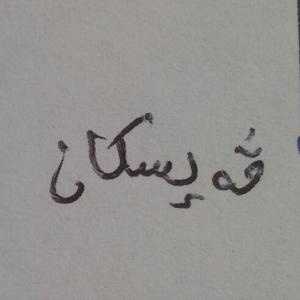 ڤەیسکان